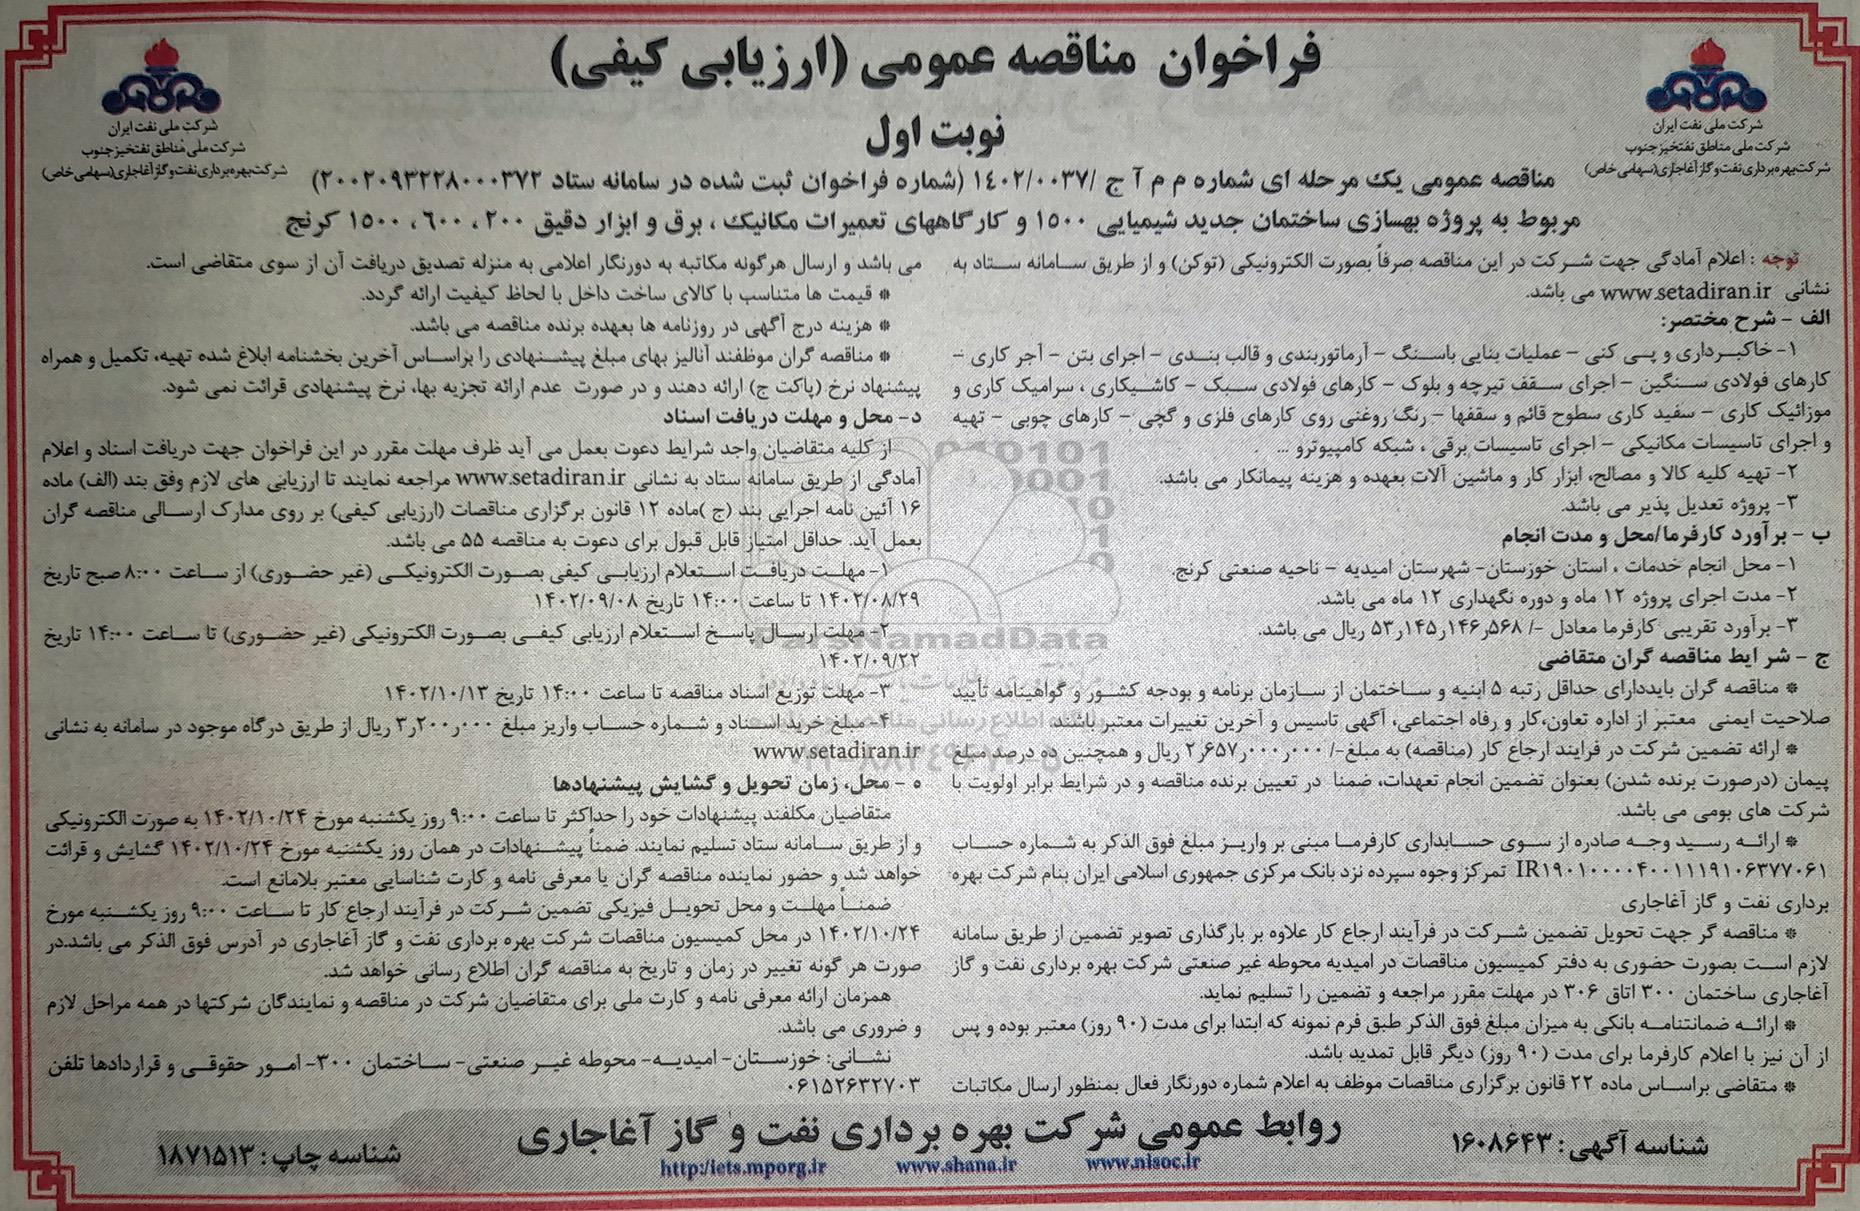 شرکت ملی نفت ایران
شرکت ملی مناطق نفتخیز جنوب
شرکت بهره برداری نفت و گاز آغاجاری (سهامی خاص)
فراخوان مناقصه عمومی (ارزیابی کیفی)
نوبت اول
شرکت ملی نفت ایران
شرکت ملی مناطق نفتخیز جنوب
شرکت بهره برداری نفت و گاز آغاجاری (سهامی خاص)
مناقصه عمومی یک مرحله ای شماره م م آ ج /۱۴۰۲/۰۰۳۷ (شماره فراخوان ثبت شده در سامانه ستاد ۲۰۰۲۰۹۳۲۲۸۰۰۰۳۷۲)
مربوط به پروژه بهسازی ساختمان جدید شیمیایی ۱۵۰۰ و کارگاههای تعمیرات مکانیک ، برق و ابزار دقیق ۲۰۰ ، ۶۰۰ ، ۱۵۰۰ کرنج
توجه : اعلام آمادگی جهت شرکت در این مناقصه صرفاً بصورت الکترونیکی (توکن) و از طریق سامانه ستاد به
نشانی www.setadiran.ir می باشد.
الف - شرح مختصر:
۱- خاکبرداری و پی کنی - عملیات بنایی باسنگ - آرماتوربندی و قالب بندی - اجرای بتن - آجر کاری -
کارهای فولادی سنگین - اجرای سقف تیرچه و بلوک - کارهای فولادی سبک - کاشیکاری ، سرامیک کاری و
موزائیک کاری - سفید کاری سطوح قائم و سقفها - رنگ روغنی روی کارهای فلزی و گچی - کارهای چوبی - تهیه
و اجرای تاسیسات مکانیکی - اجرای تاسیسات برقی ، شبکه کامپیوترو ...
۲- تهیه کلیه کالا و مصالح، ابزار کار و ماشین آلات بعهده و هزینه پیمانکار می باشد.
۳- پروژه تعدیل پذیر می باشد.
ب - برآورد کارفرما/محل و مدت انجام
۱- محل انجام خدمات ، استان خوزستان- شهرستان امیدیه - ناحیه صنعتی کرنج.
۲- مدت اجرای پروژه ۱۲ ماه و دوره نگهداری ۱۲ ماه می باشد.
۳- برآورد تقریبی کارفرما معادل -/ ۵۳ر۱۴۵ر۱۴۶ر۵۶۸ ریال می باشد.
ج - شرایط مناقصه گران متقاضی
* مناقصه گران بایددارای حداقل رتبه ۵ ابنیه و ساختمان از سازمان برنامه و بودجه کشور و گواهینامه تأیید
صلاحیت ایمنی معتبر از اداره تعاون،کار و رفاه اجتماعی، آگهی تاسیس و آخرین تغییرات معتبر باشند
* ارائه تضمین شرکت در فرایند ارجاع کار (مناقصه) به مبلغ-/ ۲ر۶۵۷ر۰۰۰ر۰۰۰ ریال و همچنین ده درصد مبلغ
پیمان (درصورت برنده شدن) بعنوان تضمین انجام تعهدات، ضمنا در تعیین برنده مناقصه و در شرایط برابر اولویت با
شرکت های بومی می باشد.
* ارائه رسید وجه صادره از سوی حسابداری کارفرما مبنی بر واریز مبلغ فوق الذکر به شماره حساب
IR۱۹۰۱۰۰۰۰۴۰۰۱۱۱۹۱۰۶۳۷۷۰۶۱ تمرکز وجوه سپرده نزد بانک مرکزی جمهوری اسلامی ایران بنام شرکت بهره
برداری نفت و گاز آغاجاری
* مناقصه گر جهت تحویل تضمین شرکت در فرآیند ارجاع کار علاوه بر بارگذاری تصویر تضمین از طریق سامانه
لازم است بصورت حضوری به دفتر کمیسیون مناقصات در امیدیه محوطه غیر صنعتی شرکت بهره برداری نفت و گاز
آغاجاری ساختمان ۳۰۰ اتاق ۳۰۶ در مهلت مقرر مراجعه و تضمین را تسلیم نماید.
* ارائه ضمانتنامه بانکی به میزان مبلغ فوق الذکر طبق فرم نمونه که ابتدا برای مدت (۹۰ روز) معتبر بوده و پس
از آن نیز با اعلام کارفرما برای مدت (۹۰ روز) دیگر قابل تمدید باشد.
* متقاضی براساس ماده ۲۲ قانون برگزاری مناقصات موظف به اعلام شماره دورنگار فعال بمنظور ارسال مکاتبات
می باشد و ارسال هرگونه مکاتبه به دورنگار اعلامی به منزله تصدیق دریافت آن از سوی متقاضی است.
* قیمت ها متناسب با کالای ساخت داخل با لحاظ کیفیت ارائه گردد.
* هزینه درج آگهی در روزنامه ها بعهده برنده مناقصه می باشد.
* مناقصه گران موظفند آنالیز بهای مبلغ پیشنهادی را براساس آخرین بخشنامه ابلاغ شده تهیه، تکمیل و همراه
پیشنهاد نرخ (پاکت ج) ارائه دهند و در صورت عدم ارائه تجزیه بها، نرخ پیشنهادی قرائت نمی شود.
د- محل و مهلت دریافت اسناد
از کلیه متقاضیان واجد شرایط دعوت بعمل می آید ظرف مهلت مقرر در این فراخوان جهت دریافت اسناد و اعلام
آمادگی از طریق سامانه ستاد به نشانی www.setadiran.ir مراجعه نمایند تا ارزیابی های لازم وفق بند (الف) ماده
۱۶ آئین نامه اجرایی بند (ج )ماده ۱۲ قانون برگزاری مناقصات (ارزیابی کیفی) بر روی مدارک ارسالی مناقصه گران
بعمل آید. حداقل امتیاز قابل قبول برای دعوت به مناقصه ۵۵ می باشد.
۱- مهلت دریافت استعلام ارزیابی کیفی بصورت الکترونیکی (غیر حضوری) از ساعت ۸:۰۰ صبح تاریخ
۱۴۰۲/۰۸/۲۹ تا ساعت ۱۴:۰۰ تاریخ ۱۴۰۲/۰۹/۰۸
۲- مهلت ارسال پاسخ استعلام ارزیابی کیفی بصورت الکترونیکی (غیر حضوری) تا ساعت ۱۴:۰۰ تاریخ
۱۴۰۲/۰۹/۲۲
۳- مهلت توزیع اسناد مناقصه تا ساعت ۱۴:۰۰ تاریخ ۱۴۰۲/۱۰/۱۳
۴- مبلغ خرید اسناد و شماره حساب واریز مبلغ ۳ر۲۰۰ر۰۰۰ ریال از طریق درگاه موجود در سامانه به نشانی
www.setadiran.ir
ه - محل، زمان تحویل و گشایش پیشنهادها
متقاضیان مکلفند پیشنهادات خود را حداکثر تا ساعت ۹:۰۰ روز یکشنبه مورخ ۱۴۰۲/۱۰/۲۴ به صورت الکترونیکی
و از طریق سامانه ستاد تسلیم نمایند. ضمناً پیشنهادات در همان روز یکشنبه مورخ ۱۴۰۲/۱۰/۲۴ گشایش و قرائت
خواهد شد و حضور نماینده مناقصه گران یا معرفی نامه و کارت شناسایی معتبر بلامانع است.
ضمناً مهلت و محل تحویل فیزیکی تضمین شرکت در فرآیند ارجاع کار تا ساعت ۹:۰۰ روز یکشنبه مورخ
۱۴۰۲/۱۰/۲۴ در محل کمیسیون مناقصات شرکت بهره برداری نفت و گاز آغاجاری در آدرس فوق الذکر می باشد.در
صورت هر گونه تغییر در زمان و تاریخ به مناقصه گران اطلاع رسانی خواهد شد.
همزمان ارائه معرفی نامه و کارت ملی برای متقاضیان شرکت در مناقصه و نمایندگان شرکتها در همه مراحل لازم
و ضروری می باشد.
نشانی: خوزستان- امیدیه- محوطه غیر صنعتی- ساختمان ۳۰۰- امور حقوقی و قراردادها تلفن
۰۶۱۵۲۶۳۲۷۰۳
روابط عمومی شرکت بهره برداری نفت و گاز آغاجاری
شناسه آگهی : ۱۶۰۸۶۴۳
www.nisoc.ir www.shana.ir http:/iets.mporg.ir
شناسه چاپ : ۱۸۷۱۵۱۳
ParsNamadData